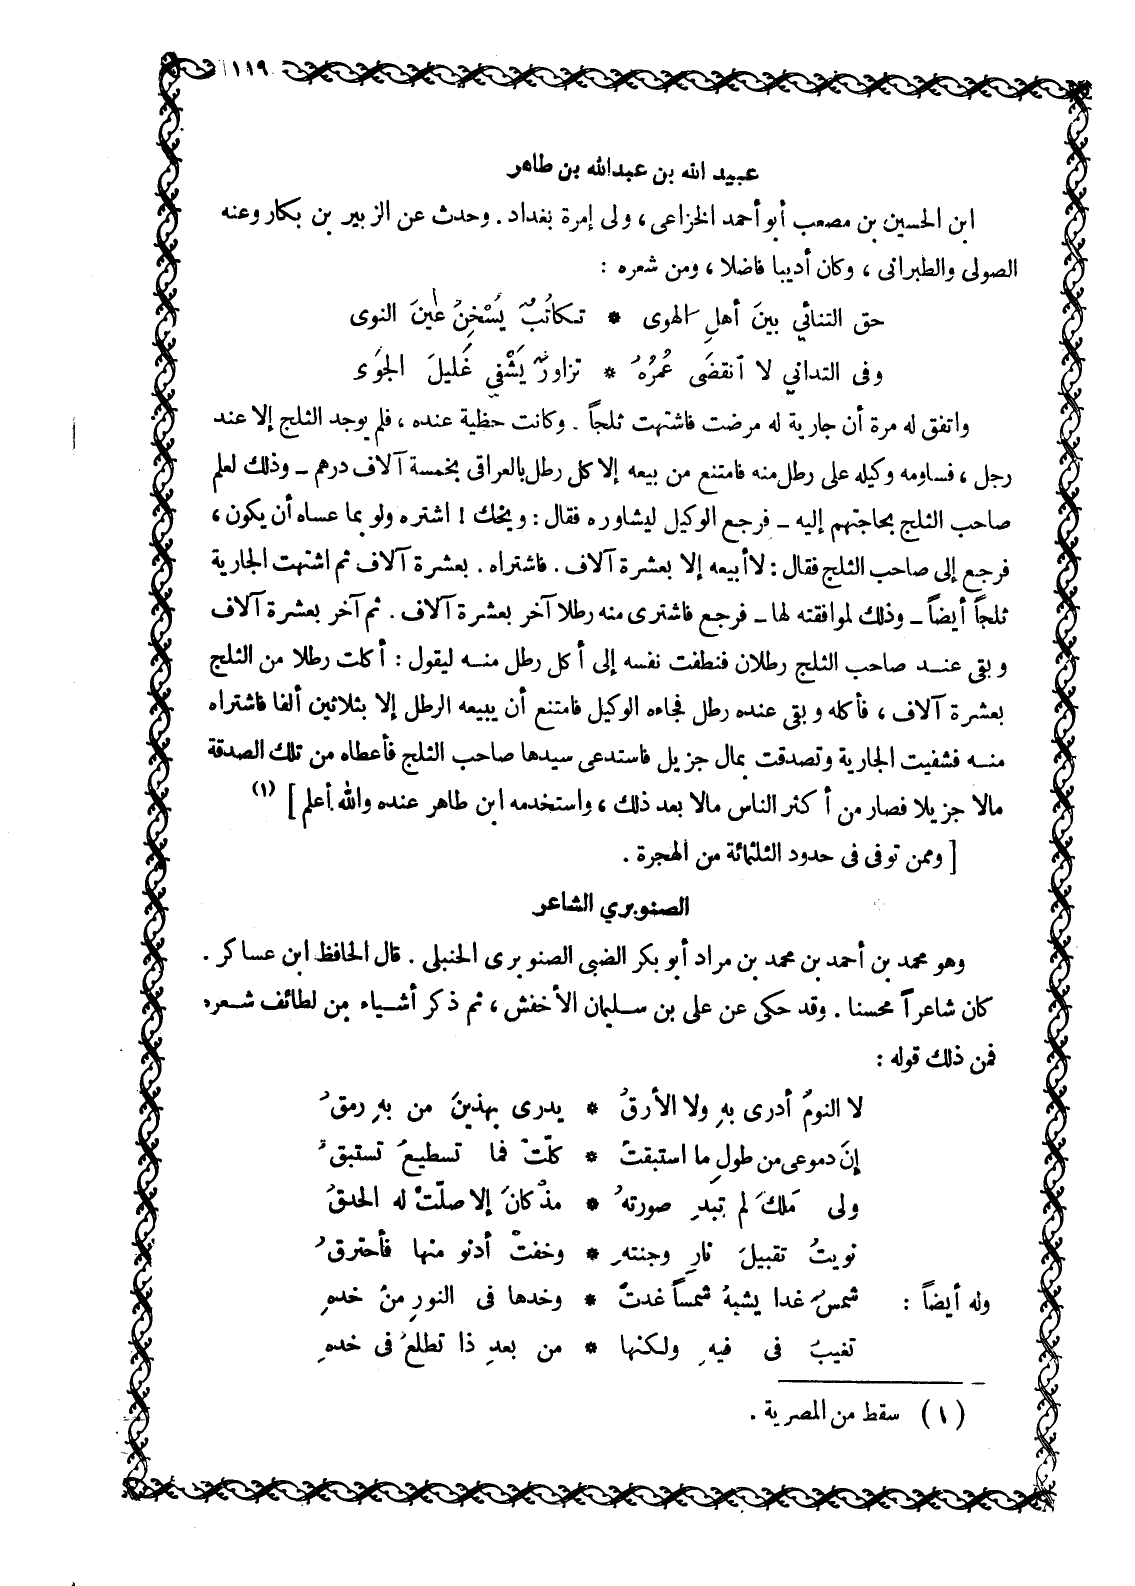 ١١٩
عبيد الله بن عبدالله بن طاهر
ابن الحسين بن مصعب أبو أحمد الخزاعى ، ولى إمرة بغداد . وحدث عن الزبير بن بكار وعنه
الصولى والطبرانى ، وكان أديبا فاضلا ، ومن شعره :
حق التنائي بينَ أهلِ الهوى * تكاتُبٌ يُسْخِنُ عينَ النوى
وفى التداني لا انقضَى عُمرُهُ * تزاورٌ يَشْفي غَليلَ الجوَى
واتفق له مرة أن جارية له مرضت فاشتهت ثلجاً . وكانت حظية عنده ، فلم يوجد الثلج إلا عند
رجل ، فساومه وكيله على رطل منه فامتنع من بيعه إلا كل رطل بالعراقى بخمسة آلاف درهم ــ وذلك لعلم
صاحب الثلج بحاجتهم إليه ــ فرجع الوكيل ليشاوره فقال : ويحك ! اشتره ولو بما عساه أن يكون ،
فرجع إلى صاحب الثلج فقال : لا أبيعه إلا بعشرة آلاف . فاشتراه . بعشرة آلاف ثم اشتهت الجارية
ثلجاً أيضاً ــ وذلك لموافقته لها ــ فرجع فاشترى منه رطلا آخر بعشرة آلاف . ثم آخر بعشرة آلاف
وبقى عنــد صاحب الثلج رطلان فنطفت نفسه إلى أكل رطل منــه ليقول : أكلت رطلا من الثلج
بعشرة آلاف ، فأكله وبقى عنده رطل فجاءه الوكيل فامتنع أن يبيعه الرطل إلا بثلاثين ألفا فاشتراه
منــه فشفيت الجارية وتصدقت بمال جزيل فاستدعى سيدها صاحب الثلج فأعطاه من تلك الصدقة
مالا جزيلا فصار من أكثر الناس مالا بعد ذلك ، واستخدمه ابن طاهر عنده والله أعلم ] (١)
[ وممن توفى فى حدود الثلثمائة من الهجرة .
الصنوبري الشاعر
وهو محمد بن أحمد بن محمد بن مراد أبو بكر الضبى الصنوبرى الحنبلى . قال الحافظ ابن عساكر .
كان شاعراً محسنا . وقد حكى عن على بن سليمان الأخفش ، ثم ذكر أشياء من لطائف شعره
فمن ذلك قوله :
لا النومُ أدرى بهِ ولا الأرقُ * يدرى بهذينَ من بهِ رمقُ
إنَ دموعى من طولِ ما استبقتْ * كلّتْ فما تسطيعُ تستبقُ
ولى مَلكَ لم تبدِ صورتهُ * مذْ كانَ إلا صلّتْ له الحدقُ
نويتُ تقبيلَ نارِ وجنتهِ * وخفتْ أدنو منها فأحترقُ
وله أيضاً : شمسٌ غدا يشبهُ شمساً غدتْ * وخدها فى النورِ منْ خدهِ
تغيبُ فى فيهِ ولكنها * من بعدِ ذا تطلعُ فى خدهِ
(١) سقط من المصرية .